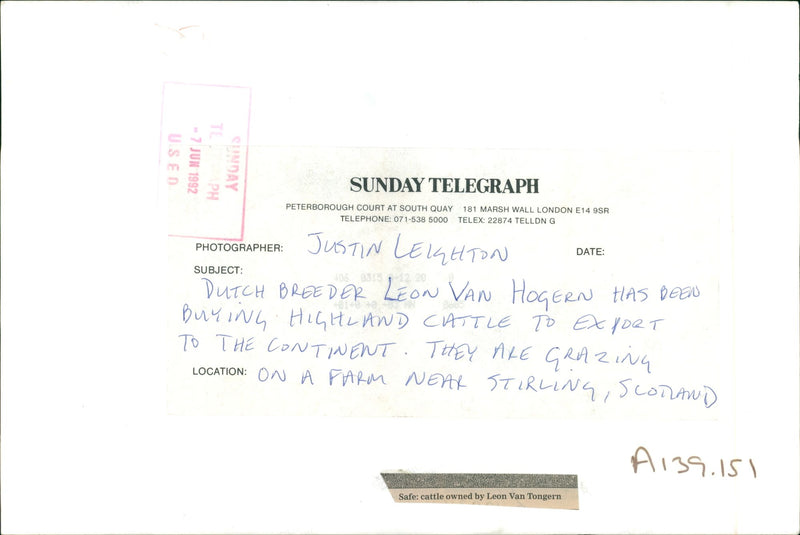 SUNDAY
- 7 JUN 1992
USED
SUNDAY TELEGRAPH
PETERBOROUGH COURT AT SOUTH QUAY 181 MARSH WALL LONDON E14 9SR
TELEPHONE: 071-538 5000 TELEX: 22874 TELLDN G
PHOTOGRAPHER: JUSTIN LEIGHTON DATE:
SUBJECT:
DUTCH BREEDER LEON VAN HOGERN HAS BEEN
BUYING HIGHLAND CATTLE TO EXPORT
TO THE CONTINENT. THEY ARE GRAZING
LOCATION: ON A FARM NEAR STIRLING, SCOTLAND
A139.151
Safe: cattle owned by Leon Van Tongern